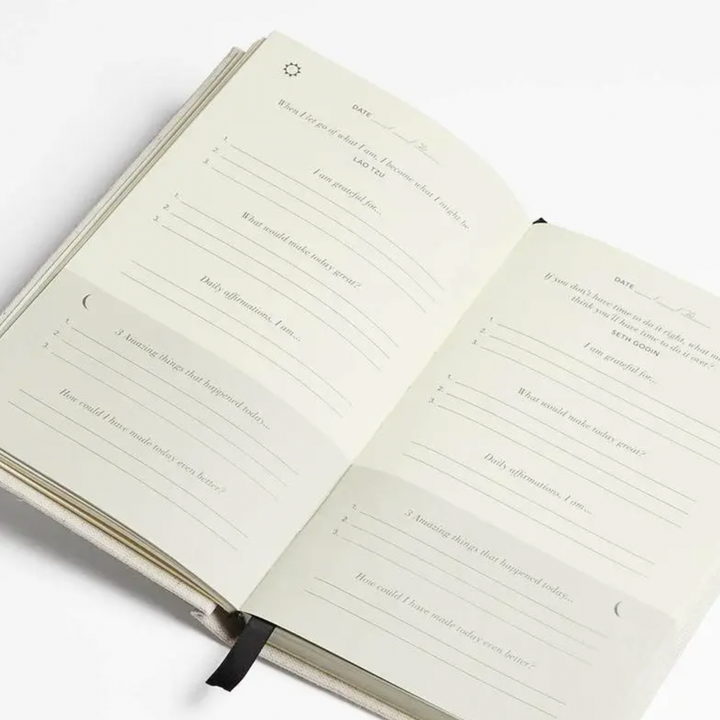 DATE ____/____/20____
When I let go of what I am, I become what I might be.
LAO TZU
I am grateful for...
1.
2.
3.
What would make today great?
1.
2.
3.
Daily affirmations. I am...
3 Amazing things that happened today...
1.
2.
3.
How could I have made today even better?
DATE ____/____/20____
If you don't have time to do it right, what m
think you'll have time to do it over?
SETH GODIN
I am grateful for...
1.
2.
3.
What would make today great?
1.
2.
3.
Daily affirmations. I am...
3 Amazing things that happened today...
1.
2.
3.
How could I have made today even better?